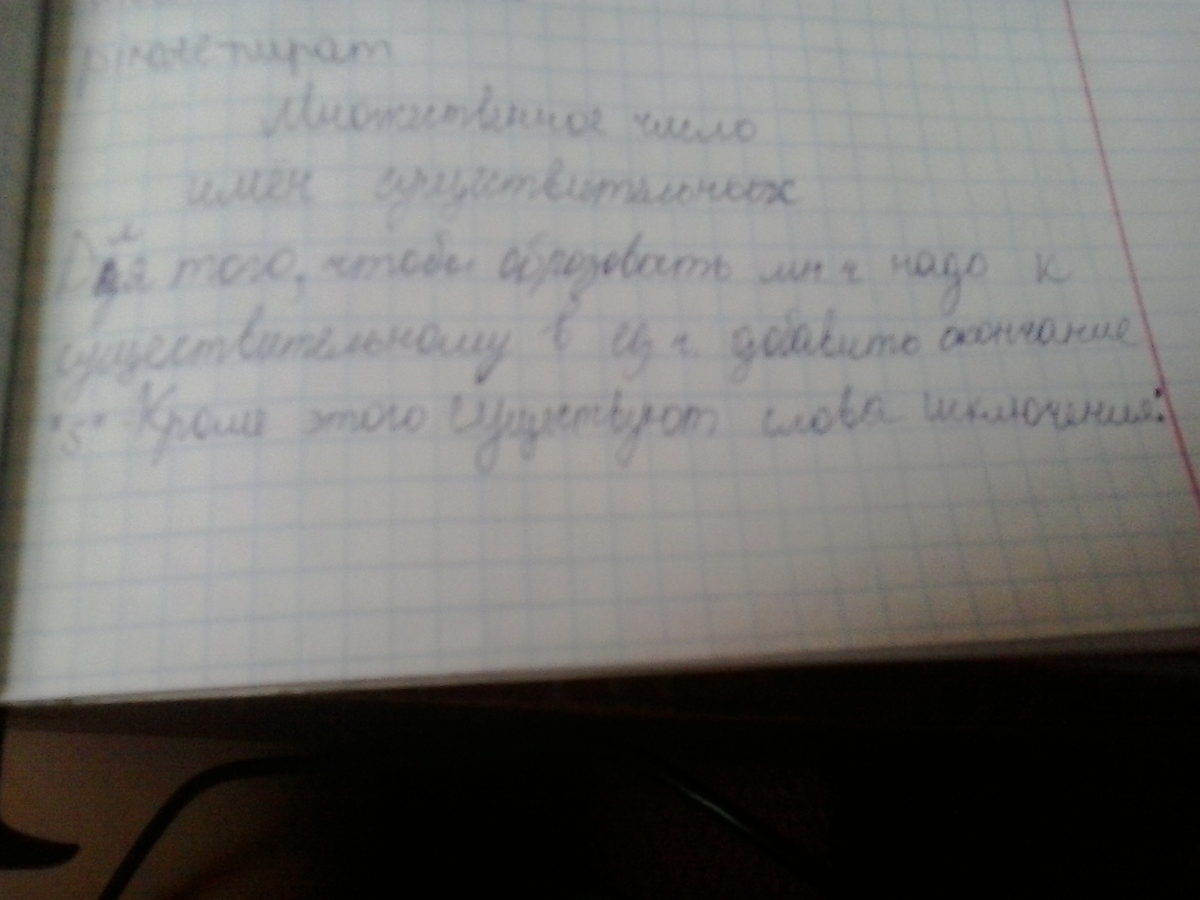 pirate-пират
Множественное число
имён существительных
Для того, чтобы образовать мн ч надо к
существительному в ед ч. добавить окончание
"s" Кроме этого существуют слова исключения: